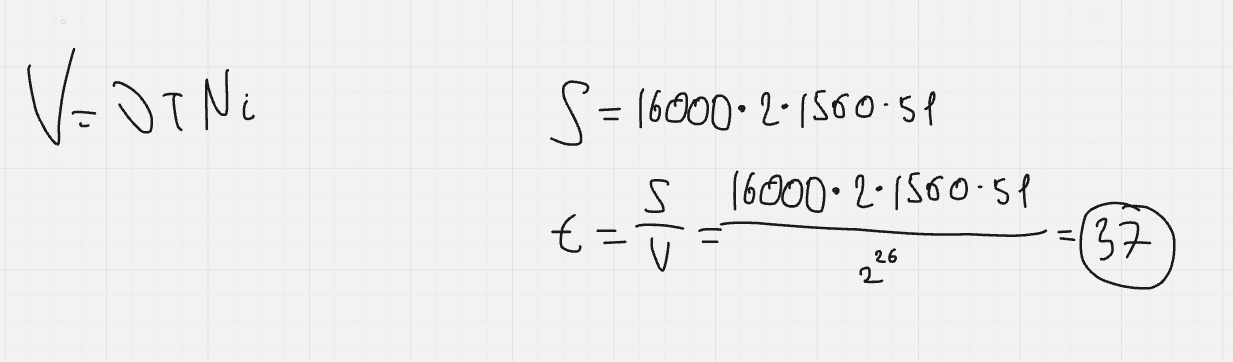 V = D T N i
S = 16000 · 2 · 1560 · 51
t = S/V = (16000 · 2 · 1560 · 51)/2^26 = 37